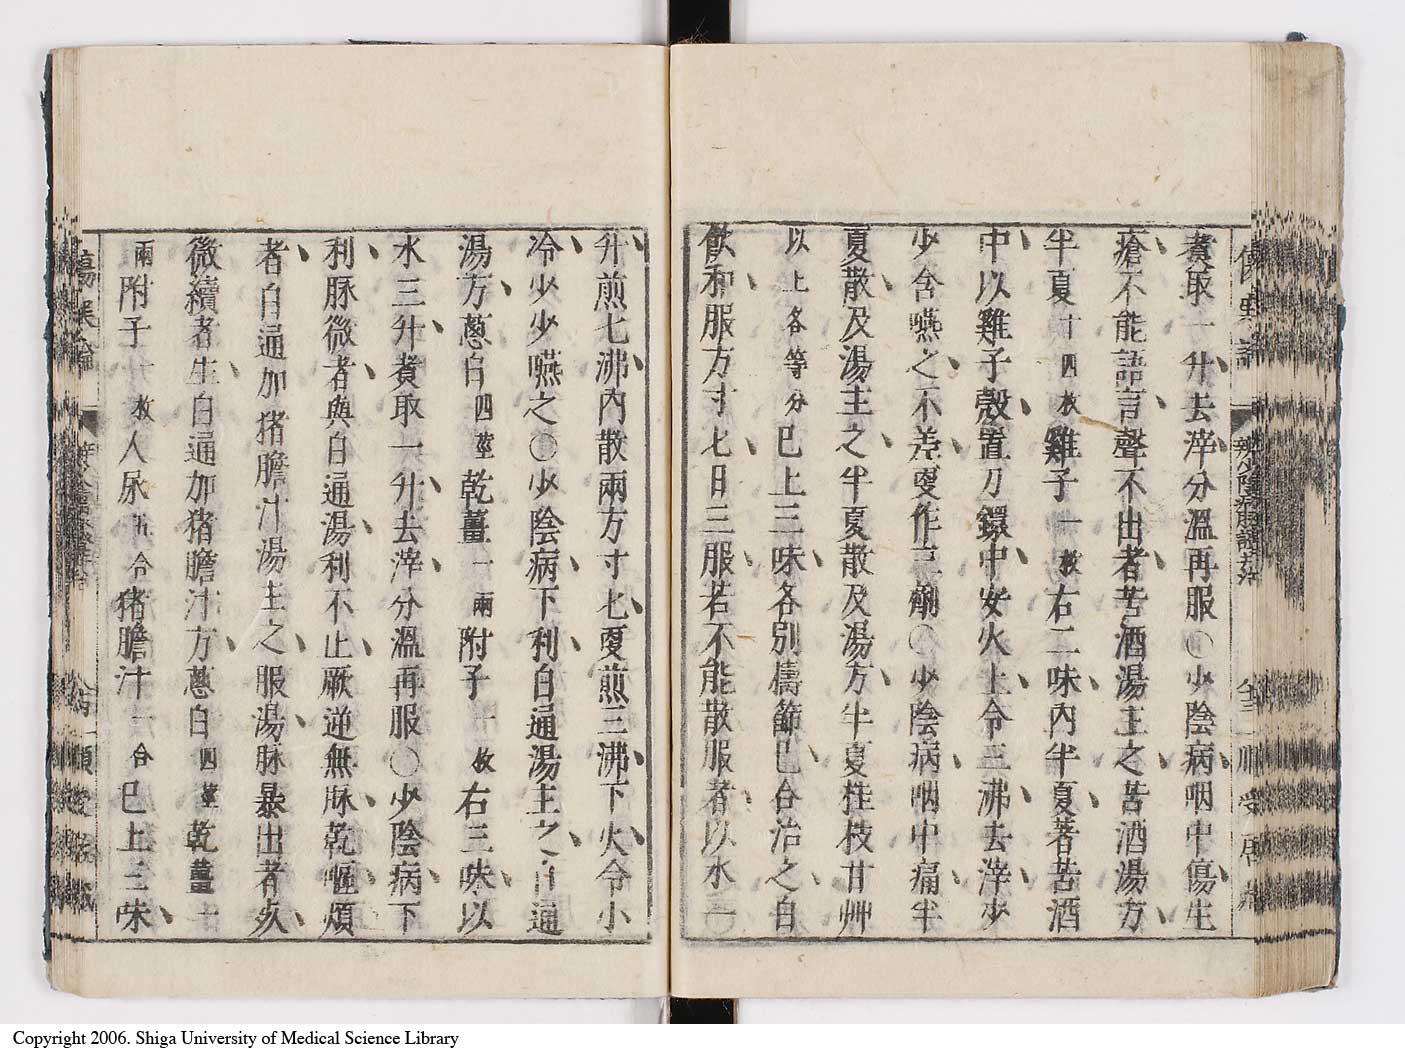 煮取一升去滓分溫再服○少陰病咽中傷生
瘡不能語言聲不出者苦酒湯主之苦酒湯方
半夏十四枚雞子一枚右二味內半夏著苦酒
中以雞子殼置刀鐶中安火上令三沸去滓少
少含嚥之不差更作三劑○少陰病咽中痛半
夏散及湯主之半夏散及湯方半夏桂枝甘艸
以上各等分已上三味各別擣篩已合治之白
飲和服方寸七日三服若不能散服者以水一
升煎七沸內散兩方寸七更煎三沸下火令小
冷少少嚥之○少陰病下利白通湯主之白通
湯方蔥白四莖乾薑一兩附子一枚右三味以
水三升煮取一升去滓分溫再服○少陰病下
利脉微者與白通湯利不止厥逆無脉乾嘔煩
者白通加猪膽汁湯主之服湯脉暴出者死
微續者生白通加猪膽汁方蔥白四莖乾薑一
兩附子一枚人尿五合猪膽汁一合已上三味
Copyright 2006. Shiga University of Medical Science Library